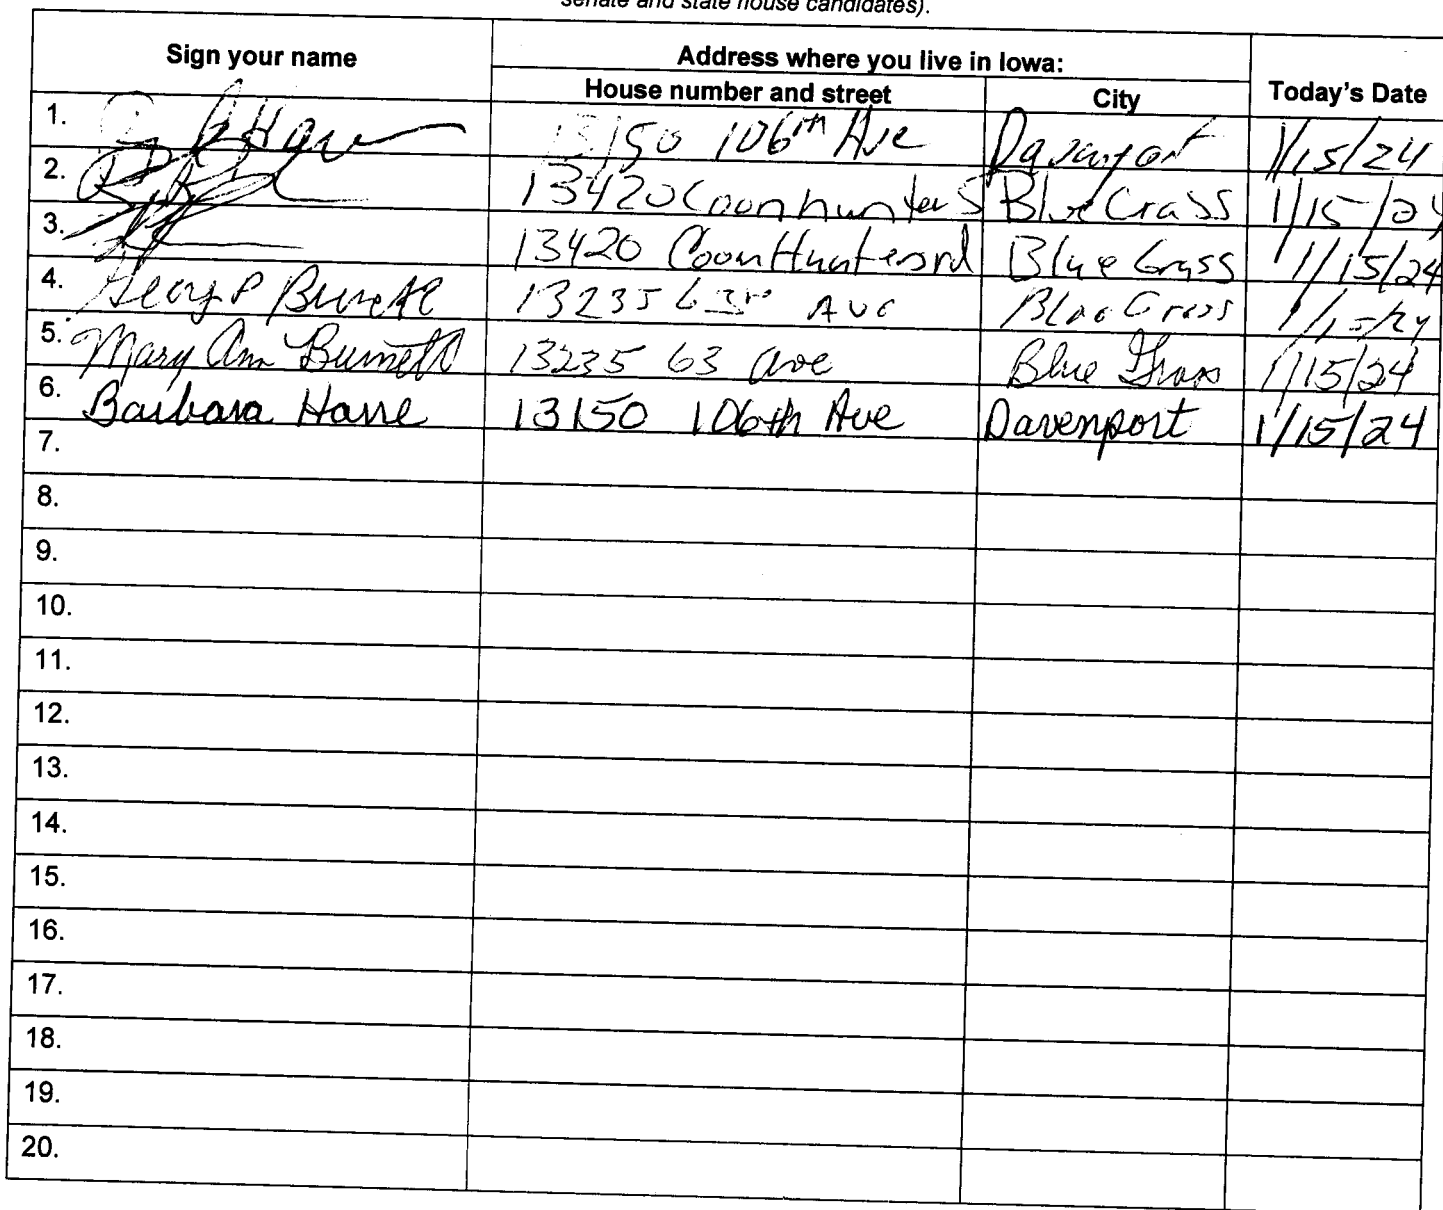 senate and state house candidates).
Sign your name
Address where you live in Iowa:
House number and street
City
Today's Date
1. 13150 106th Ave Davenport 1/15/24
2. 13420 Coonhunters Blue Grass 1/15/24
3. 13420 CoonHunters rd Blue Grass 1/15/24
4. George P Burnett 13235 63rd Ave Blue Grass 1/15/24
5. Mary Ann Burnett 13235 63 ave Blue Grass 1/15/24
6. Barbara Harre 13150 106th Ave Davenport 1/15/24
7.
8.
9.
10.
11.
12.
13.
14.
15.
16.
17.
18.
19.
20.